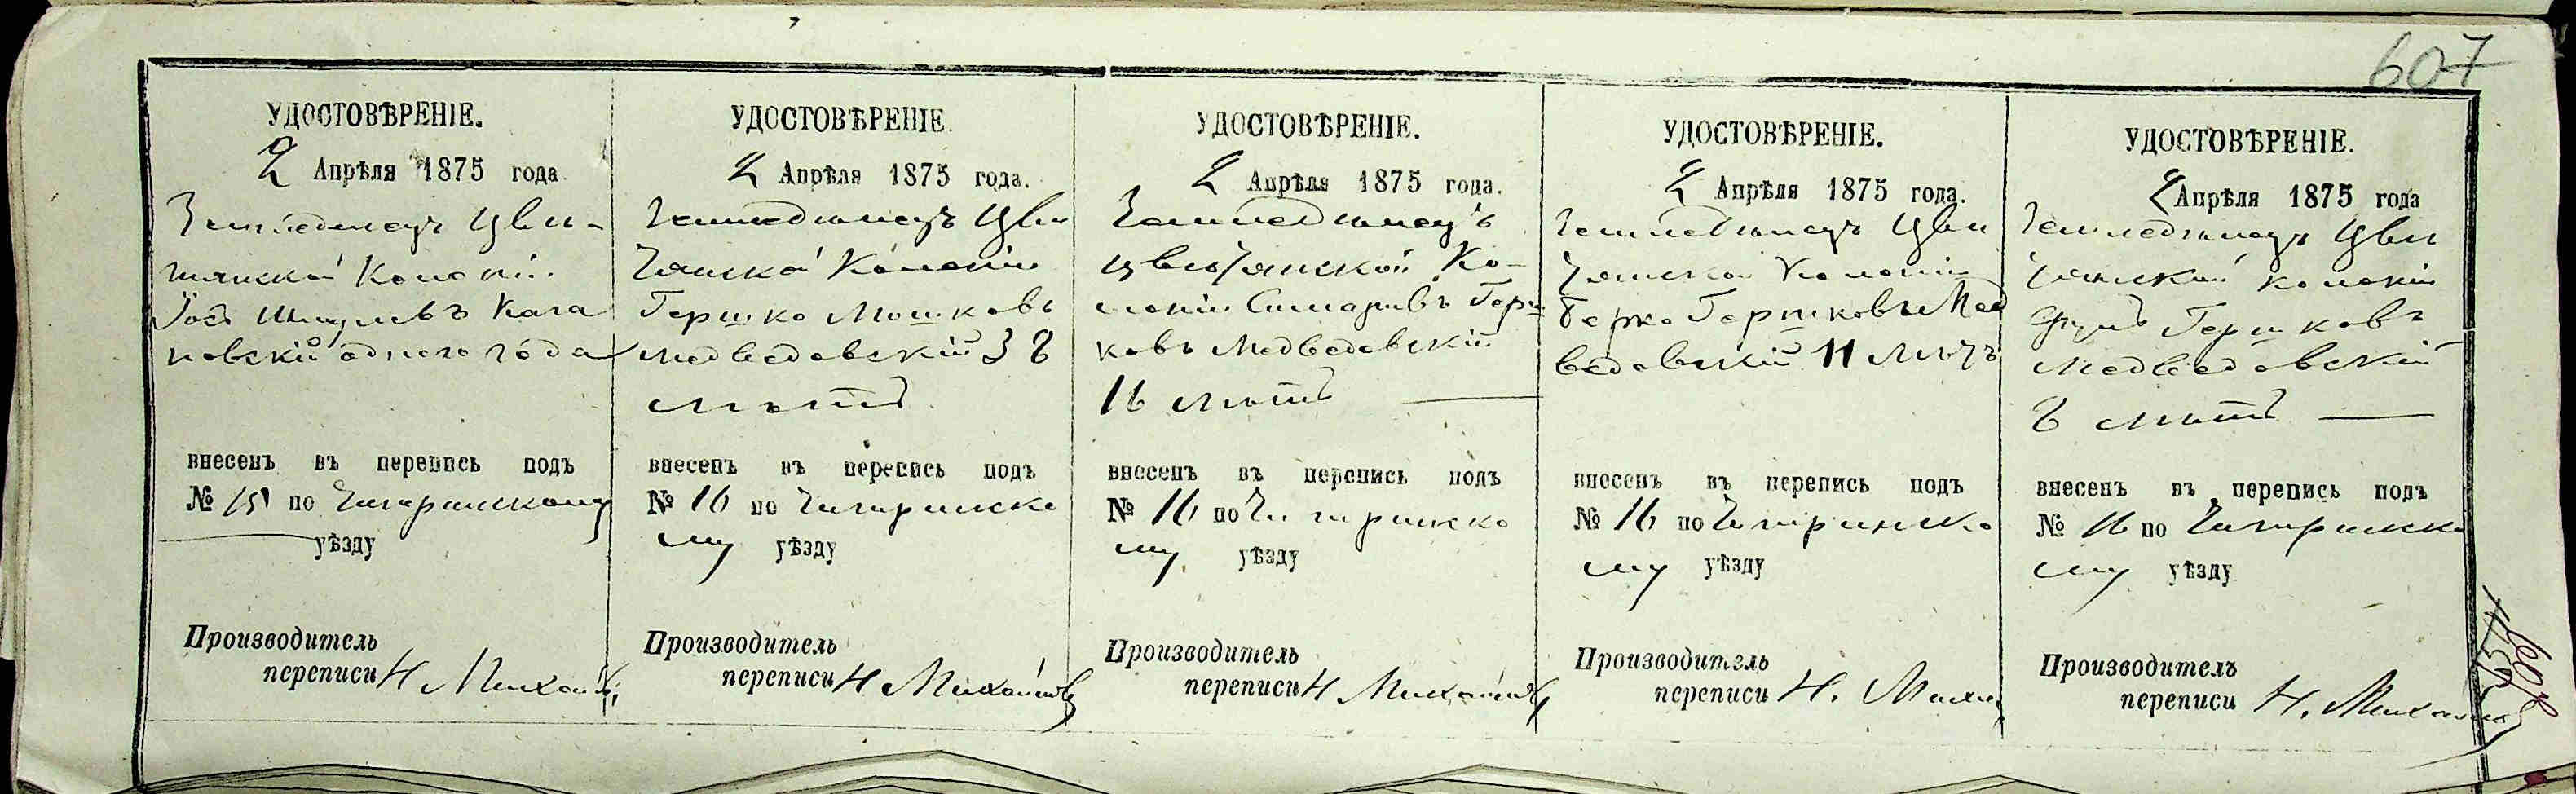 607
УДОСТОВѢРЕНІЕ.
2 Апрѣля 1875 года
Земледелецъ Цви-
тянской Колоніи
Іось Шмулевъ Кага
новскій одного года
внесенъ въ перепись подъ
№ 15 по Чигиринскому
уѣзду
Производитель
переписи Н Михайл
УДОСТОВѢРЕНІЕ.
2 Апрѣля 1875 года.
Земледѣлецъ Цви
тянской Колоніи
Гершко Мошковъ
Медведовскій 38
лѣтъ
внесенъ въ перепись подъ
№ 16 по Чигиринско
му уѣзду
Производитель
переписи Н Михайловъ
УДОСТОВѢРЕНІЕ.
2 Апрѣля 1875 года.
Земледѣлецъ
Цвитянской Ко-
лоніи Герш
ковъ Медведовскій
16 лѣтъ
внесенъ въ перепись подъ
№ 16 по Чигиринско
му уѣзду
Производитель
переписи Н Михайловъ
УДОСТОВѢРЕНІЕ.
2 Апрѣля 1875 года.
Земледѣлецъ Цви
тянской Колоніи
Берко Гершковъ Мед
ведовскій 11 лѣтъ
внесенъ въ перепись подъ
№ 16 по Чигиринско
му уѣзду
Производитель
переписи Н. Михай
УДОСТОВѢРЕНІЕ.
2 Апрѣля 1875 года
Земледѣлецъ Цви
тянской колоніи
Гершковъ
Медведовскій
8 лѣтъ
внесенъ въ перепись подъ
№ 16 по Чигиринско
му уѣзду
Производитель
переписи Н. Михайловъ